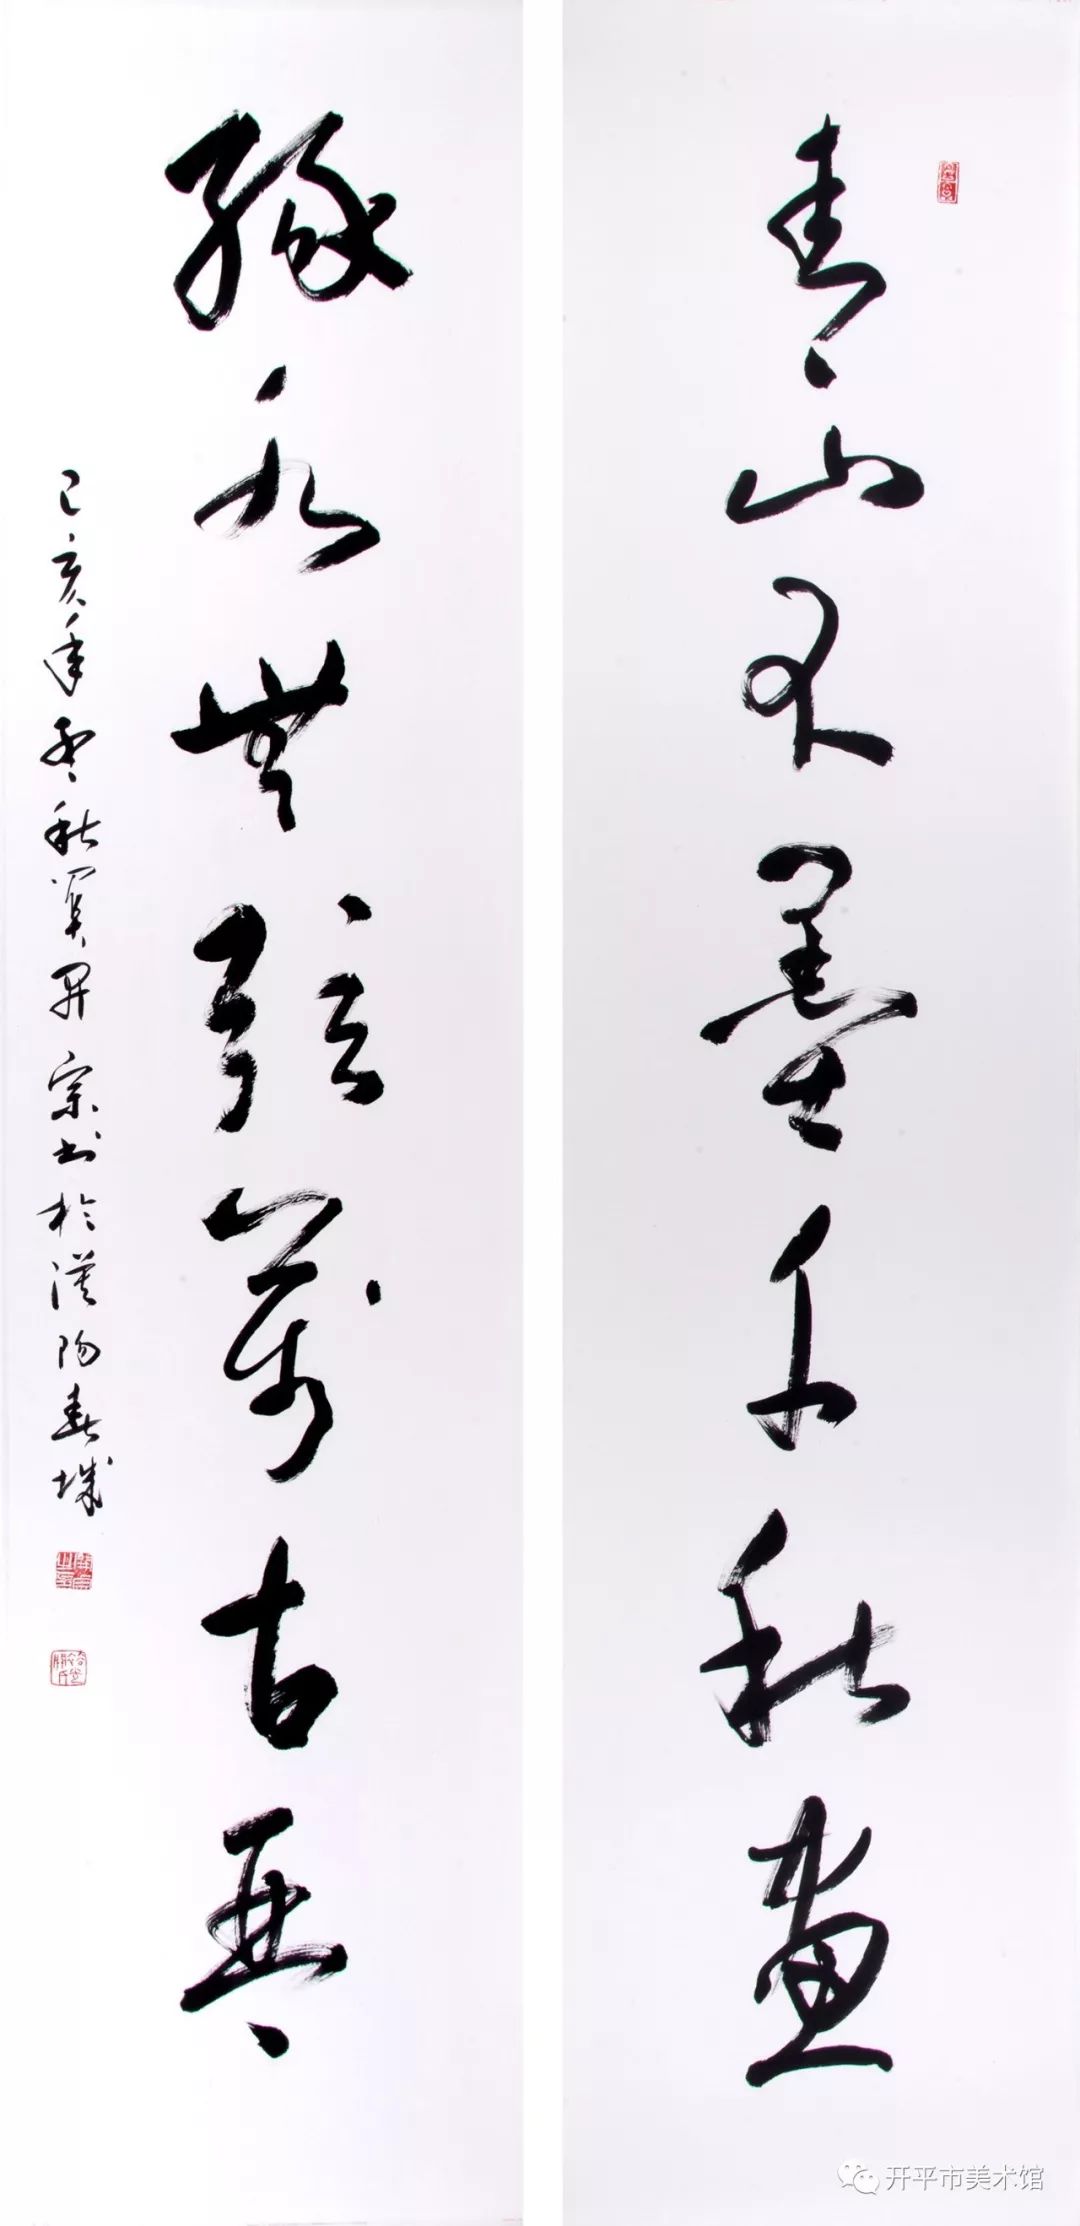 青山不墨千秋画
绿水无弦万古琴
己亥年季秋关昇宗书于汉阳春城
开平市美术馆